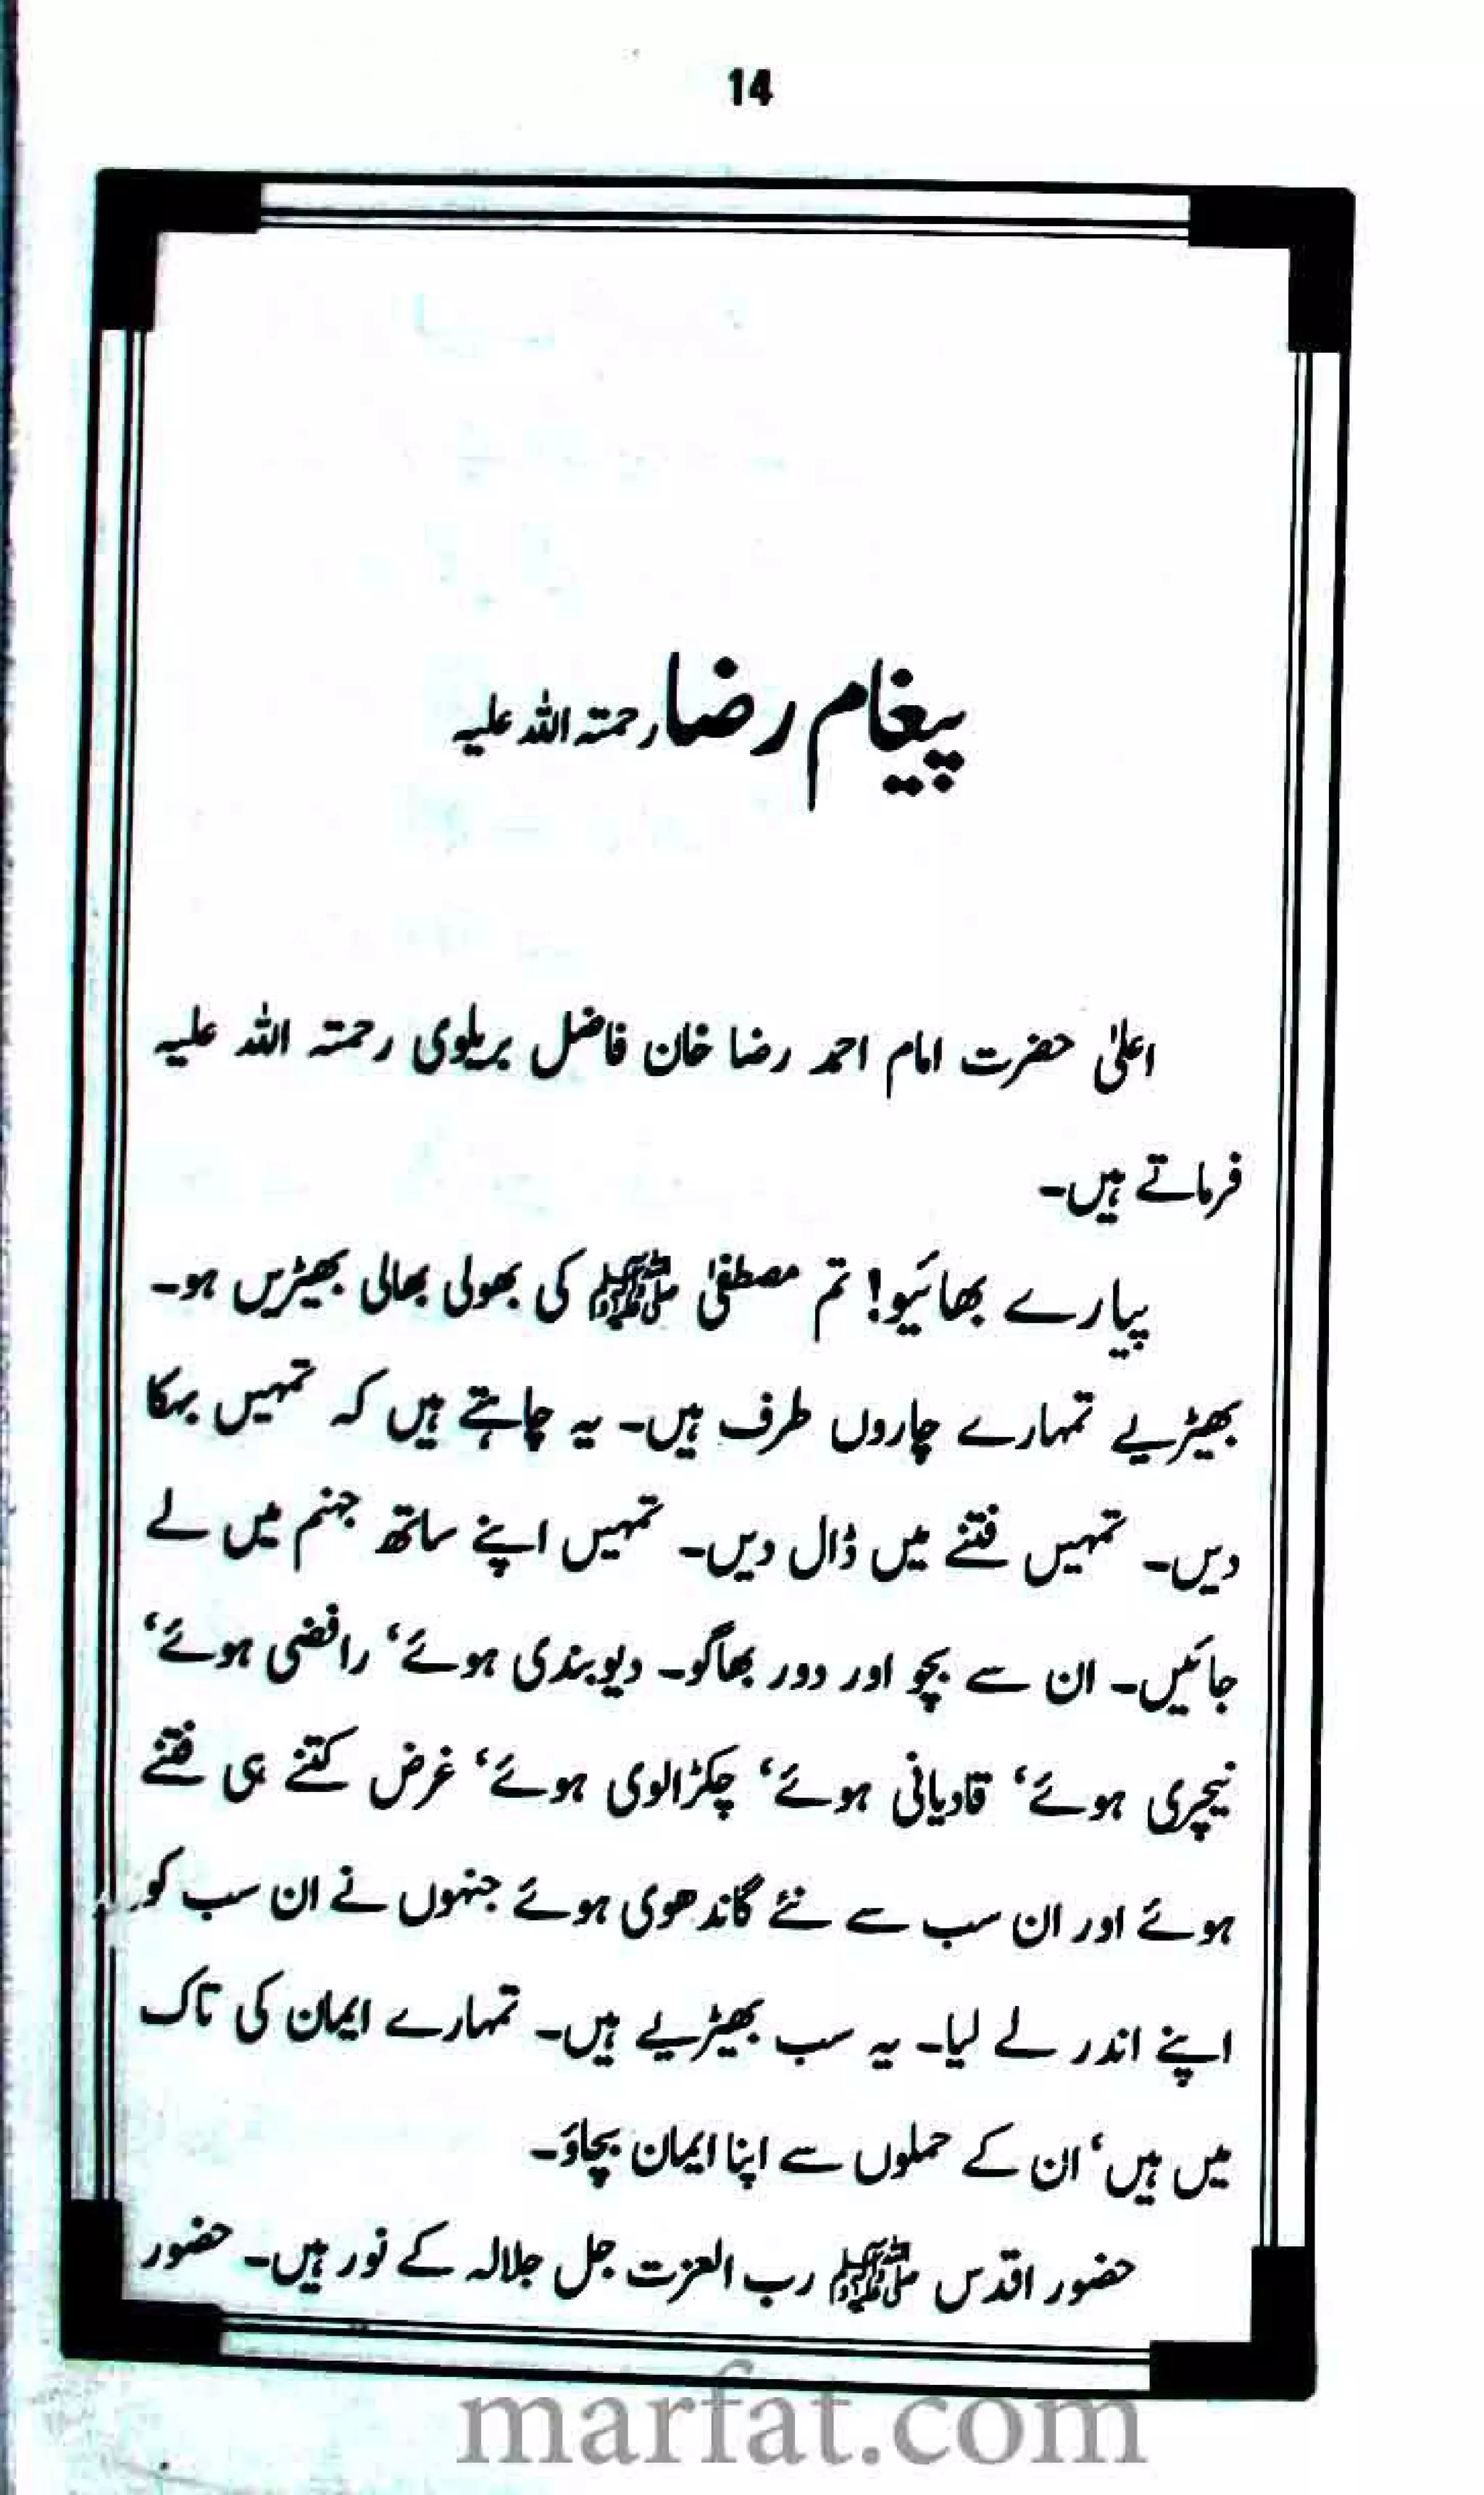 14
پیغام رضا رحمتہ اللہ علیہ
اعلیٰ حضرت امام احمد رضا خان فاضل بریلوی رحمتہ اللہ علیہ
فرماتے ہیں۔
پیارے بھائیو! تم مصطفیٰ ﷺ کی بھولی بھالی بھیڑیں ہو۔
بھیڑیے تمہارے چاروں طرف ہیں۔ یہ چاہتے ہیں کہ تمہیں بہکا
دیں۔ تمہیں فتنے میں ڈال دیں۔ تمہیں اپنے ساتھ جہنم میں لے
جائیں۔ ان سے بچو اور دور بھاگو۔ دیوبندی ہوئے‘ رافضی ہوئے‘
نیچری ہوئے‘ قادیانی ہوئے‘ چکڑالوی ہوئے‘ غرض کتنے ہی فتنے
ہوئے اور ان سب سے نئے گاندھوی ہوئے جنہوں نے ان سب کو
اپنے اندر لے لیا۔ یہ سب بھیڑیے ہیں۔ تمہارے ایمان کی تاک
میں ہیں‘ ان کے حملوں سے اپنا ایمان بچاؤ۔
حضور اقدس ﷺ رب العزت جل جلالہ کے نور ہیں۔ حضور
marfat.com